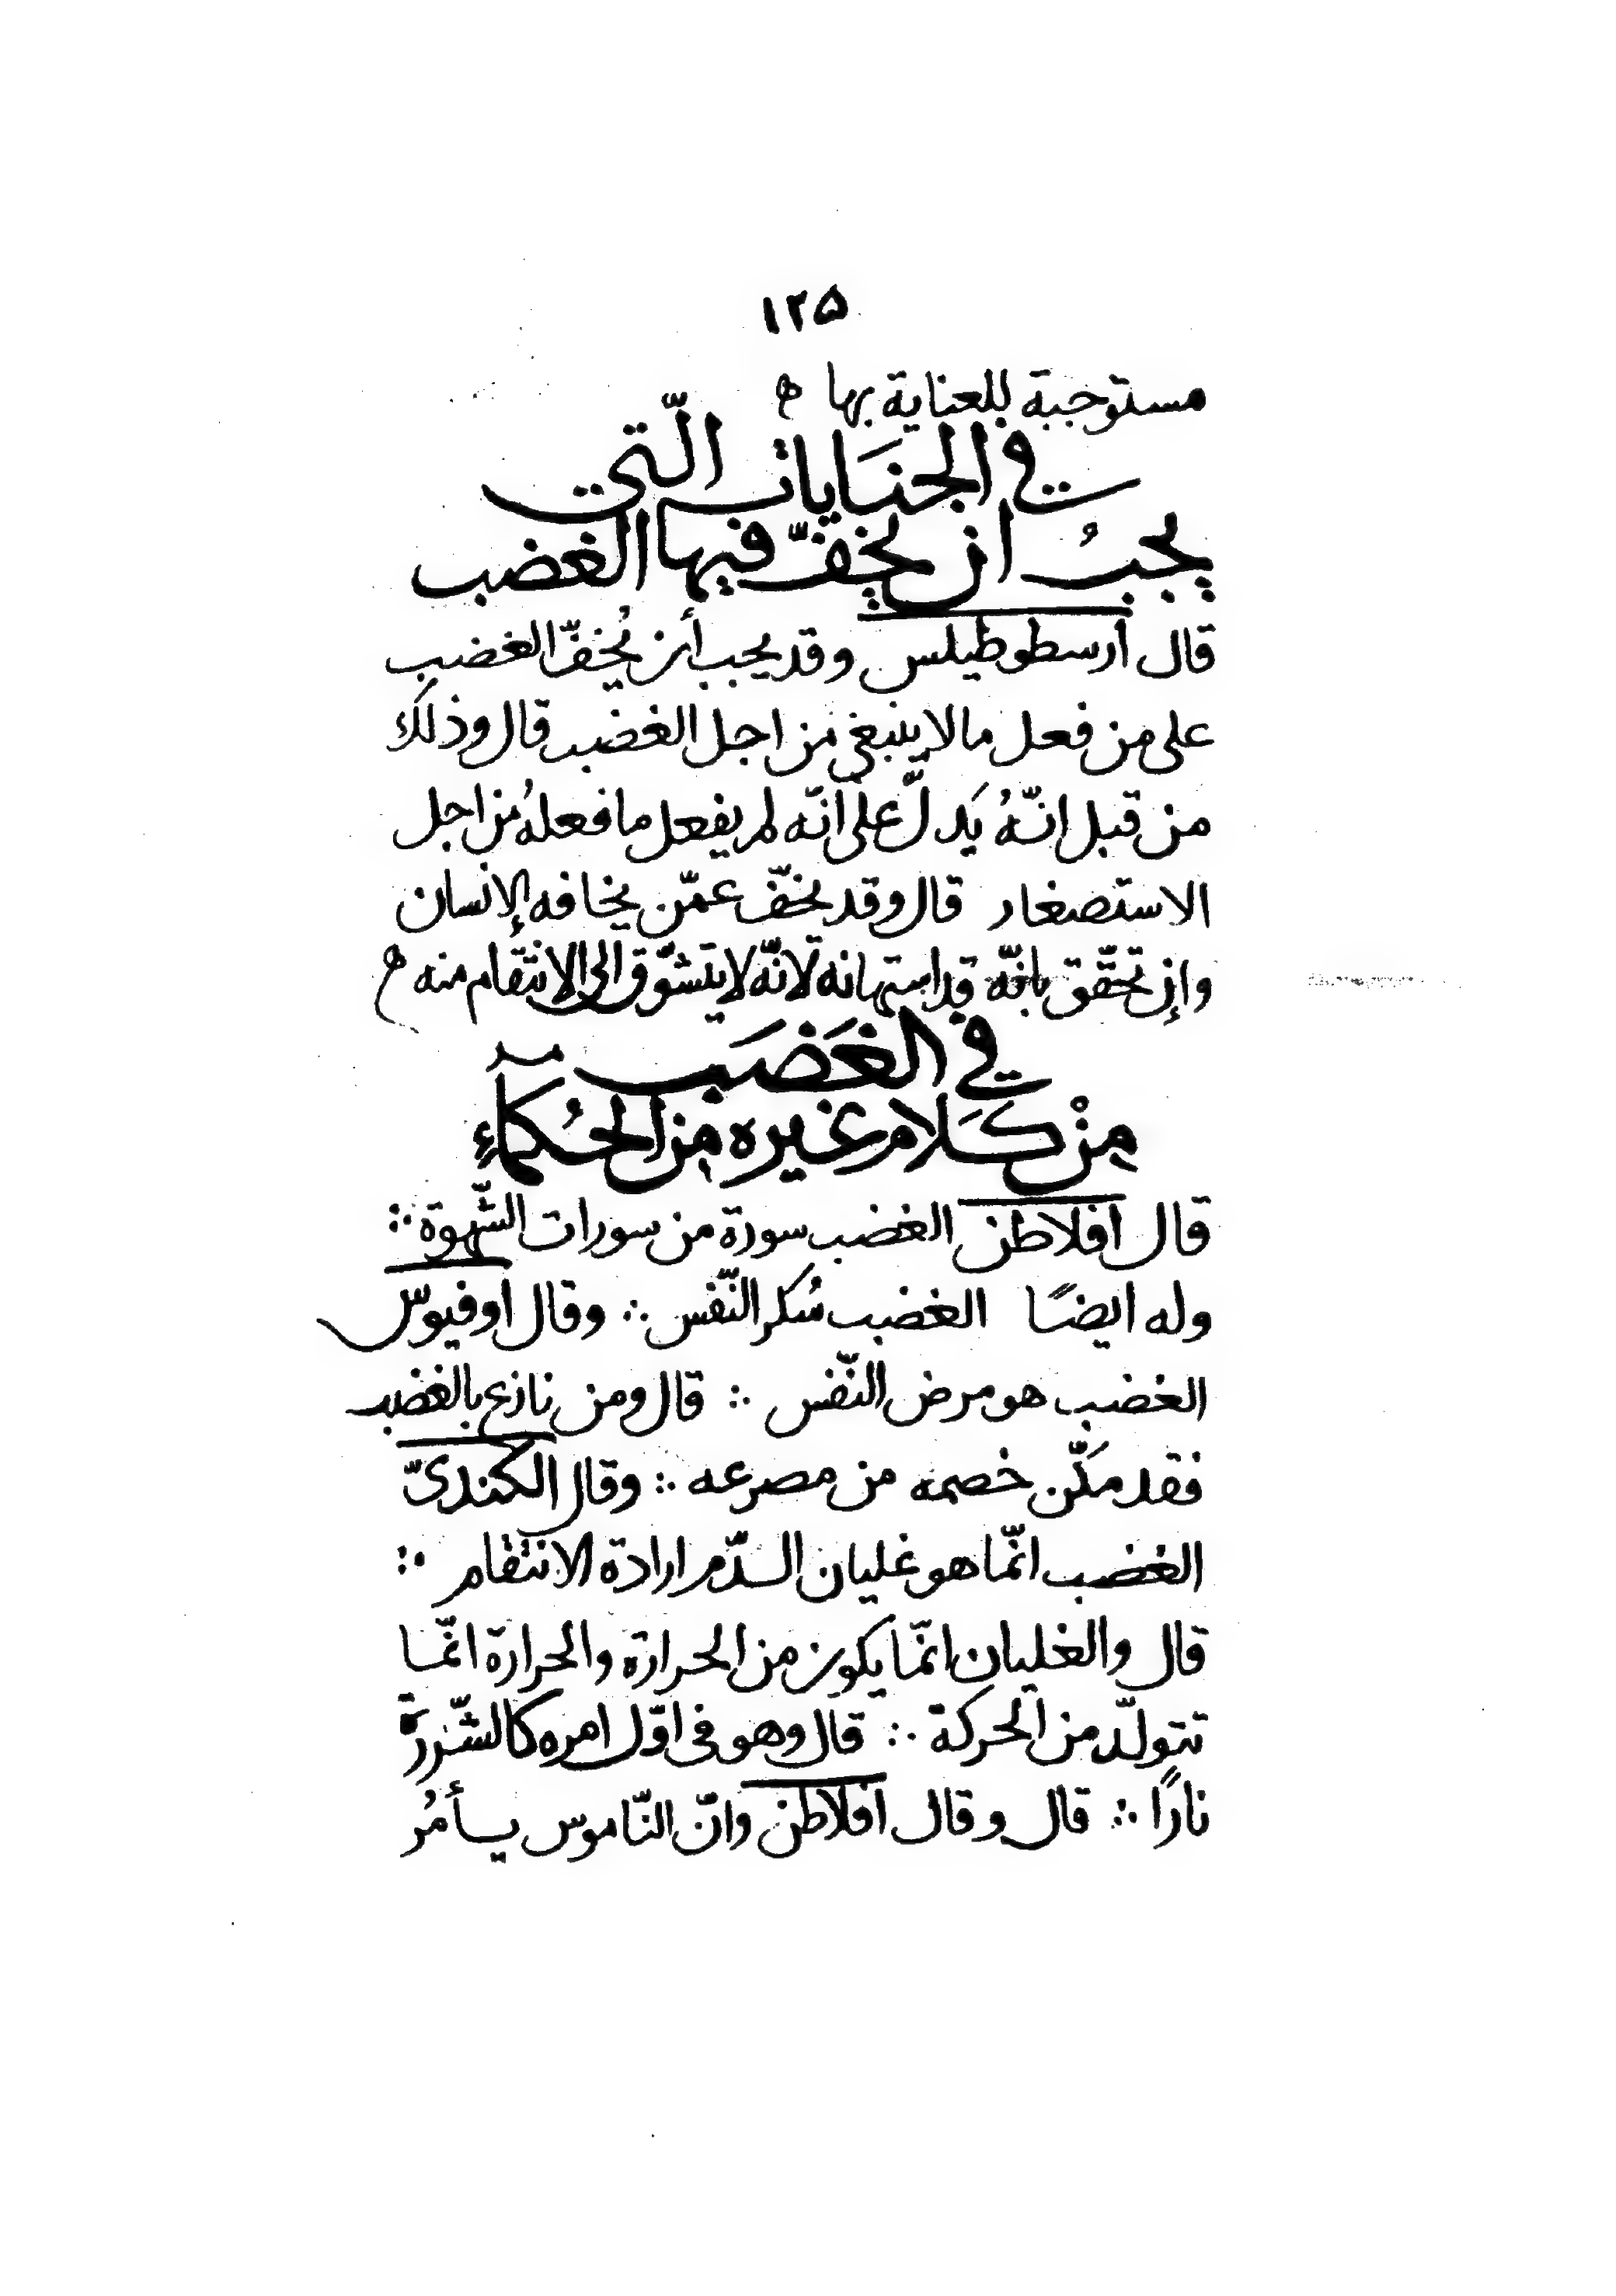 ١٢۵
مستوجبة للعناية بها ه
في الجنَايات الّتي
يجبُ ان يخفّ فيها الغضب
قال أرسطوطيلس وقد يجب أن يُخفّ الغضب
على من فعل ما لا ينبغي من اجل الغضب قال وذلك
من قبل انّهُ يَدلّ على انّه لم يفعل ما فعلهُ من اجل
الاستصغار قال وقد يخفّ عمّن يخافه الإنسان
وإن تحقّق بانّه قد استهانه لانّه لا يتشوّق الى الانتقام منه ه
في الغَضَب
مِنْ كَلام غيره من الحُكمآء
قال افلاطن الغضب سورة من سورات الشّهوة ∴
وله ايضًا الغضب سُكر النّفس ∴ وقال اوفيوس
الغضب هو مرض النّفس ∴ قال ومن نازع بالغضب
فقد مَكّن خصمه من مصرعه ∴ وقال الكنديّ
الغضب انّما هو غليان الدّم ارادة الانتقام ∴
قال والغليان انّما يكون من الحرارة والحرارة انّما
تتولّد من الحركة ∴ قال وهو في اوّل امره كالشّررة
نارًا ∴ قال وقال افلاطن وانّ النّاموس يأمُر